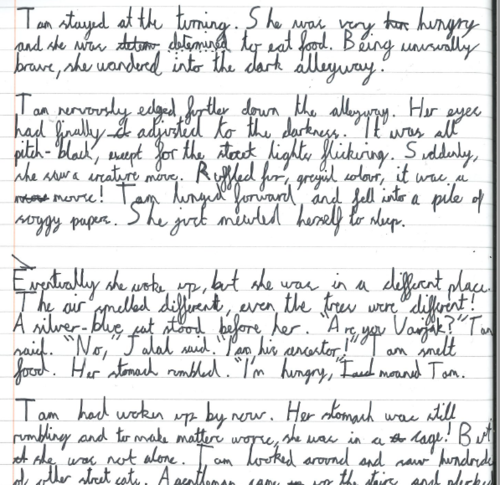 Tam stayed at the turning. She was very hungry
and she was determined to eat food. Being unusually
brave, she wandered into the dark alleyway.
Tam nervously edged further down the alleyway. Her eyes
had finally adjusted to the darkness. It was all
pitch-black, except for the street lights flickering. Suddenly,
she saw a creature move. Ruffled fur, greyish colour, it was a
mouse! Tam lunged forward, and fell into a pile of
soggy paper. She just mewled herself to sleep.
Eventually she woke up, but she was in a different place.
The air smelled different, even the trees were different!
A silver-blue cat stood before her. "Are you Varjak?" Tam
said. "No," Jalal said. "I am his ancestor!" Tam smelt
food. Her stomach rumbled. "I'm hungry," moaned Tam.
Tam had woken up by now. Her stomach was still
rumbling and to make matters worse, she was in a cage! But
she was not alone. Tam looked around and saw hundreds
of other street cats. A gentleman came up the stairs and